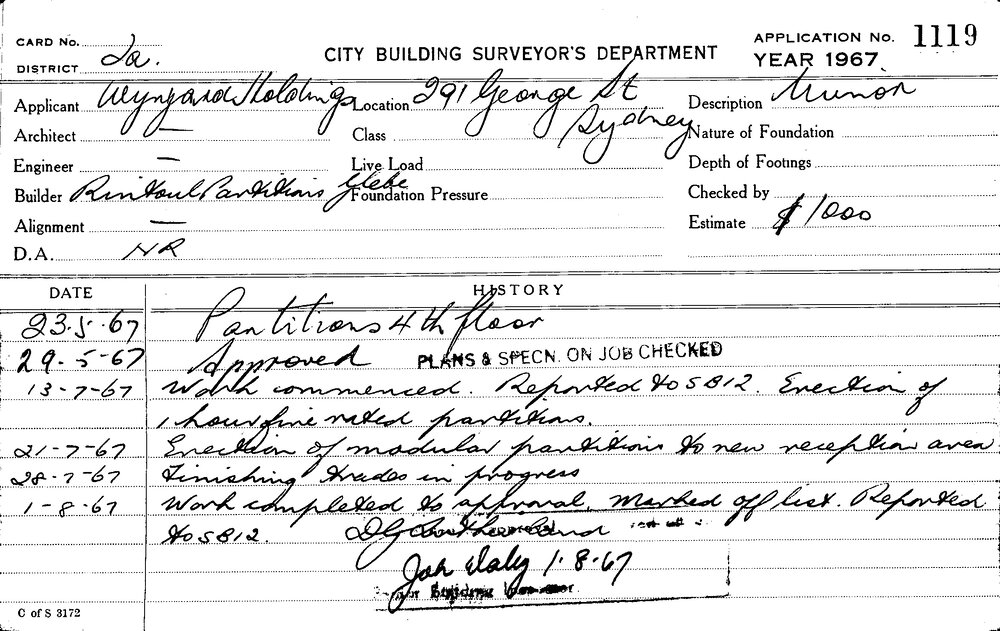 CARD No. 2a.
DISTRICT
CITY BUILDING SURVEYOR'S DEPARTMENT
APPLICATION No. 1119
YEAR 1967.
Applicant Wynyard Holdings Location 291 George St Sydney Description Minor
Architect — Class Nature of Foundation
Engineer — Live Load Depth of Footings
Builder Rintoul Partitions Glebe Foundation Pressure Checked by
Alignment — Estimate $1000
D.A. NR
DATE HISTORY
23.5.67 Partitions 4th floor
29-5-67 Approved PLANS & SPECN. ON JOB CHECKED
13-7-67 Work commenced. Reported to SB12. Erection of
1 hour fire rated partitions.
21-7-67 Erection of modular partitions to new reception area
28-7-67 Finishing trades in progress
1-8-67 Work completed to approval. Marked off list. Reported
to SB12.
1.8.67
C of S 3172